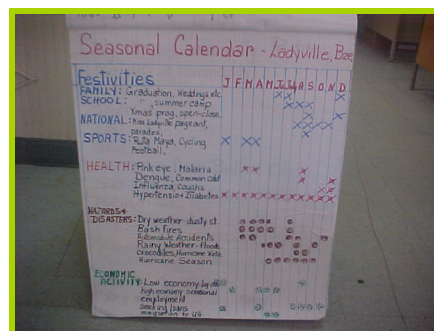 Seasonal Calendar - Ladyville, Bze
Festivities J F M A M Ju July A S O N D
FAMILY: Graduation, Weddings etc
SCHOOL: " , summer camp
Xmas prog, open-close,
NATIONAL: Miss Ladyville pageant,
parades,
SPORTS: Ruta Maya, Cycling
Football,
HEALTH: Pink eye, Malaria
Dengue, Common Cold
Influenza, Coughs
Hypertension + Diabetes
HAZARDS +
DISASTERS: Dry weather-dusty st.
Bush Fires
Automobile Accidents
Rainy Weather-Floods
crocodiles, Hurricane
Hurricane Season
ECONOMIC
ACTIVITY: Low economy by
high economy seasonal
employment
Seeking jobs
migration to US